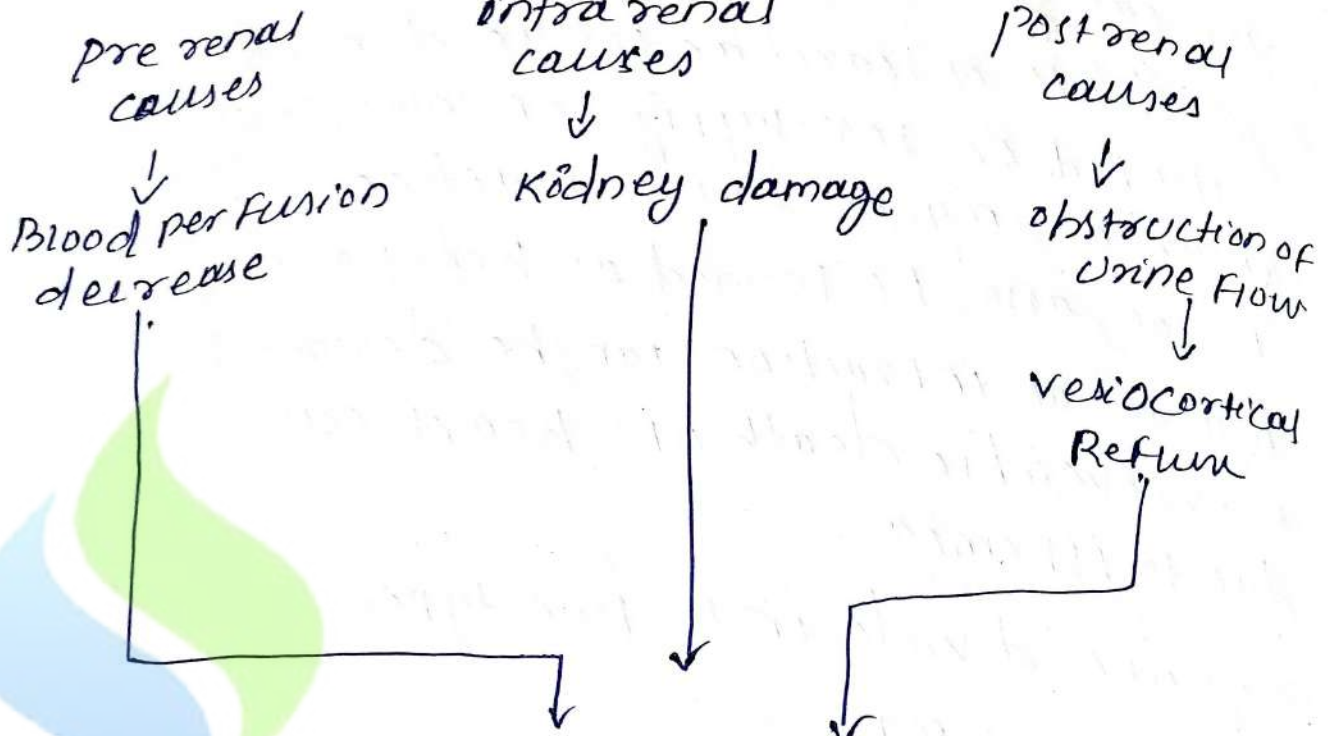 Pre renal
causes
Blood perfusion
decrease
Intra renal
causes
Kidney damage
Post renal
causes
obstruction of
Urine Flow
vesiocortical